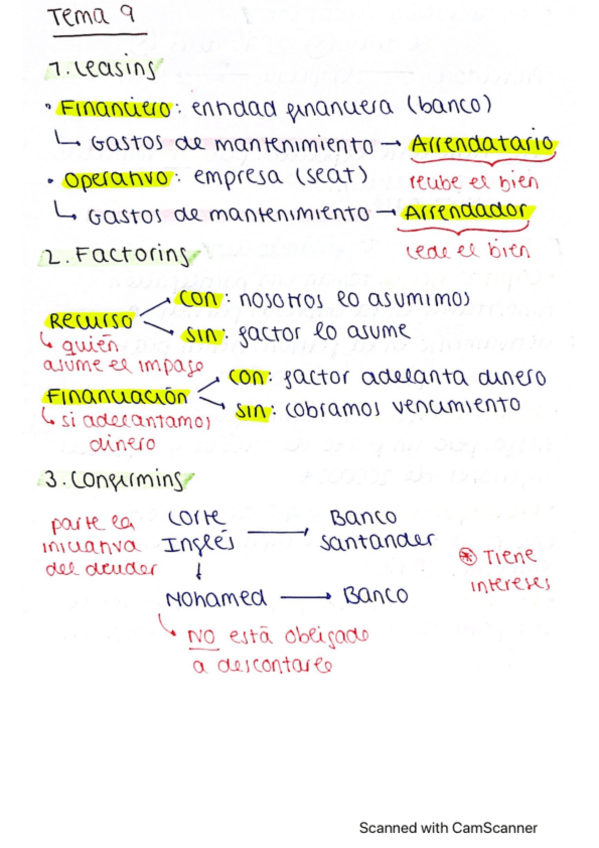 Tema 9
1. Leasing
• Financiero: entidad financiera (banco)
↳ Gastos de mantenimiento → Arrendatario
recibe el bien
• Operativo: empresa (seat)
↳ Gastos de mantenimiento → Arrendador
cede el bien
2. Factoring
Recurso
con: nosotros lo asumimos
sin: factor lo asume
↳ quién
asume el impago
Financiación
con: factor adelanta dinero
sin: cobramos vencimiento
↳ si adelantamos
dinero
3. Confirming
parte la
iniciativa
del deuder
Corte
Inglés → Banco
Santander
* Tiene
intereses
Mohamed → Banco
↳ NO está obligado
a descontarlo
Scanned with CamScanner